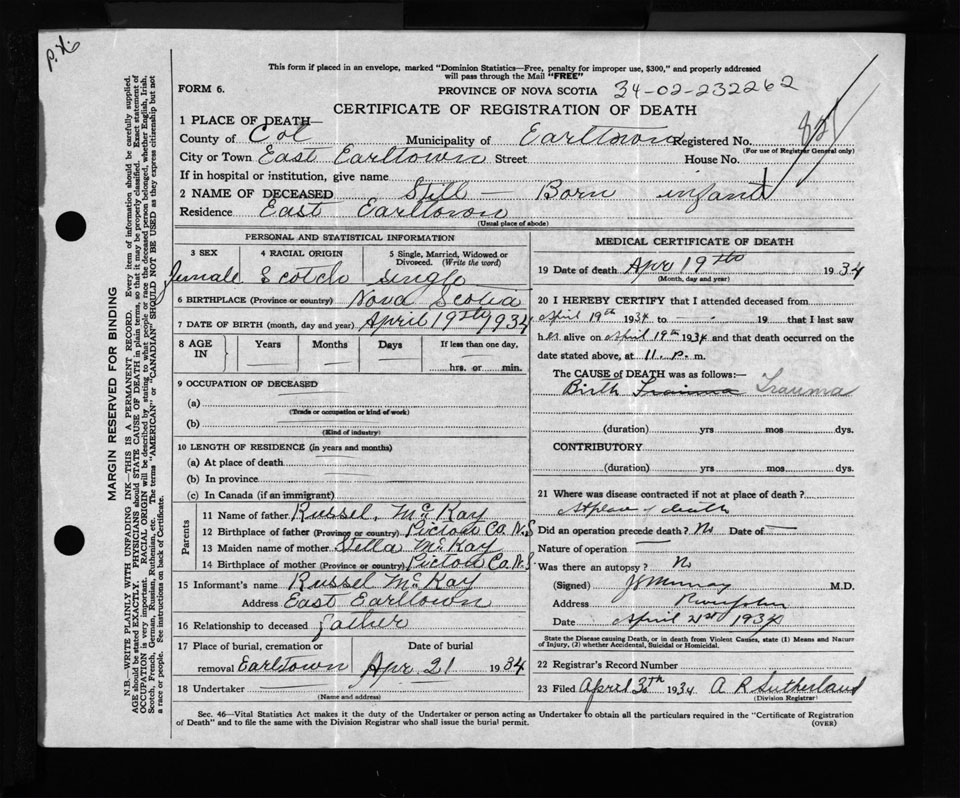 P.X.
This form if placed in an envelope, marked "Dominion Statistics—Free, penalty for improper use, $300," and properly addressed
will pass through the Mail "FREE"
FORM 6.
PROVINCE OF NOVA SCOTIA 34-02-232262
CERTIFICATE OF REGISTRATION OF DEATH
1 PLACE OF DEATH—
County of Col Municipality of Earltown Registered No.
(For use of Registrar General only)
City or Town East Earltown Street House No.
If in hospital or institution, give name
2 NAME OF DECEASED Still — Born infant
Residence East Earltown
(Usual place of abode)
PERSONAL AND STATISTICAL INFORMATION
3 SEX 4 RACIAL ORIGIN 5 Single, Married, Widowed or Divorced. (Write the word)
Female Scotch single
6 BIRTHPLACE (Province or country) Nova Scotia
7 DATE OF BIRTH (month, day and year) April 19th 1934
8 AGE IN Years Months Days If less than one day,
hrs. or min.
9 OCCUPATION OF DECEASED
(a)
(Trade or occupation or kind of work)
(b)
(Kind of industry)
10 LENGTH OF RESIDENCE (in years and months)
(a) At place of death
(b) In province
(c) In Canada (if an immigrant)
Parents
11 Name of father Russel McKay
12 Birthplace of father (Province or country) Pictou Co. N.S
13 Maiden name of mother Stella McKay
14 Birthplace of mother (Province or country) Pictou Co. N.S
15 Informant's name Russel McKay
Address East Earltown
16 Relationship to deceased father
17 Place of burial, cremation or removal Date of burial
Earltown Apr 21 1934
18 Undertaker
(Name and address)
MEDICAL CERTIFICATE OF DEATH
19 Date of death Apr 19th 1934
(Month, day and year)
20 I HEREBY CERTIFY that I attended deceased from
April 19th 1934 to 19 that I last saw
her alive on April 19th 1934 and that death occurred on the
date stated above, at 11. P. m.
The CAUSE of DEATH was as follows:—
Birth Trauma Trauma
(duration) yrs mos dys.
CONTRIBUTORY
(duration) yrs mos dys.
21 Where was disease contracted if not at place of death?
At place of death
Did an operation precede death? No Date of
Nature of operation
Was there an autopsy? No
(Signed) Murray M.D.
Address
Date April 21st 1934
State the Disease causing Death, or in death from Violent Causes, state (1) Means and Nature
of Injury, (2) whether Accidental, Suicidal or Homicidal.
22 Registrar's Record Number
23 Filed April 30th 1934 A R Sutherland
(Division Registrar)
Sec. 46—Vital Statistics Act makes it the duty of the Undertaker or person acting as Undertaker to obtain all the particulars required in the "Certificate of Registration
of Death" and to file the same with the Division Registrar who shall issue the burial permit.
(OVER)
MARGIN RESERVED FOR BINDING
N.B.—WRITE PLAINLY WITH UNFADING INK—THIS IS A PERMANENT RECORD. Every item of information should be carefully supplied.
AGE should be stated EXACTLY. PHYSICIANS should STATE CAUSE OF DEATH in plain terms, so that it may be properly classified. Exact statement of
OCCUPATION is very important. RACIAL ORIGIN will be described by stating to what people or race the deceased person belonged, whether English, Irish,
Scotch, French, German, Russian, Ruthenian, etc. The terms "AMERICAN" or "CANADIAN" SHOULD NOT BE USED as they express citizenship but not
a race or people. See instructions on back of Certificate.